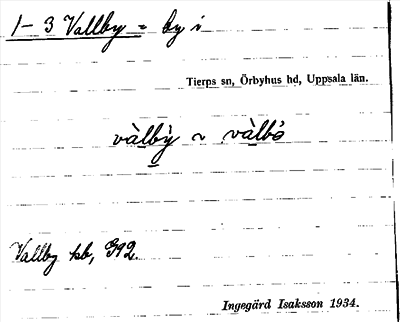 1-3 Vallby = by i
Tierps sn, Örbyhus hd, Uppsala län.
vàlbỳ ~ vàlbö
Vallby kb, G92
Ingegärd Isaksson 1934.